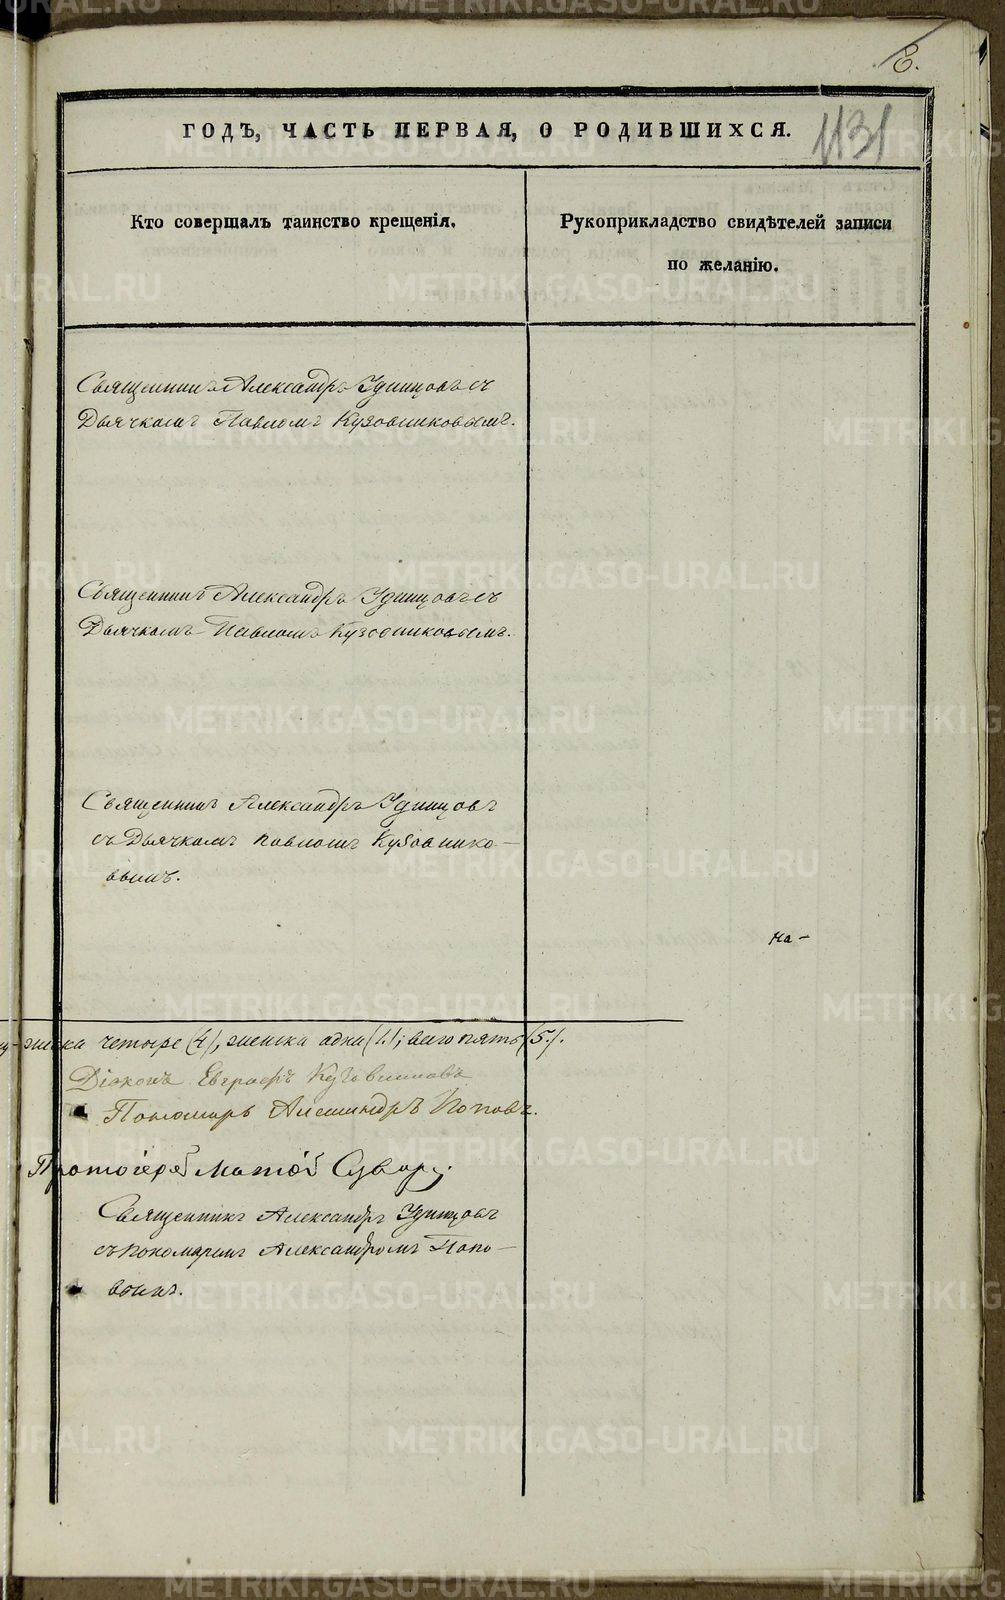 Е.
1131
ГОДЪ, ЧАСТЬ ПЕРВАЯ, О РОДИВШИХСЯ.
Кто совершалъ таинство крещенія.
Рукоприкладство свидѣтелей записи
по желанію.
Священникъ Александръ Удинцовъ съ
Дьячкомъ Павломъ Кузовниковымъ.
Священникъ Александръ Удинцовъ съ
Дьячкомъ Павломъ Кузовниковымъ.
Священникъ Александръ Удинцовъ
съ Дьячкомъ Павломъ Кузовнико-
вымъ.
на-
четыре (4), женска одна (1.); всего пять (5.).
Діаконъ Евграфъ Кузовниковъ
Пономарь Александръ Поповъ.
Протоіерей
Священникъ Александръ Удинцовъ
съ пономаремъ Александромъ Попо-
вымъ.
METRIKI.GASO-URAL.RU